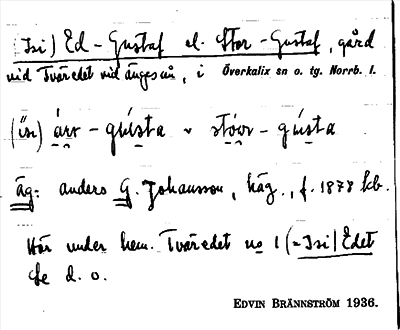 Isi) Ed-Gustaf el. Stor-Gustaf, gård
vid Tväredet vid Ängeså, i Överkalix sn o. tg. Norrb. l.
äg: anders G. Johansson, häg., f. 1878 kb.
Hör under hem. Tväredet no 1 (=Isi) Edet
se d. o.
EDVIN BRÄNNSTRÖM 1936.